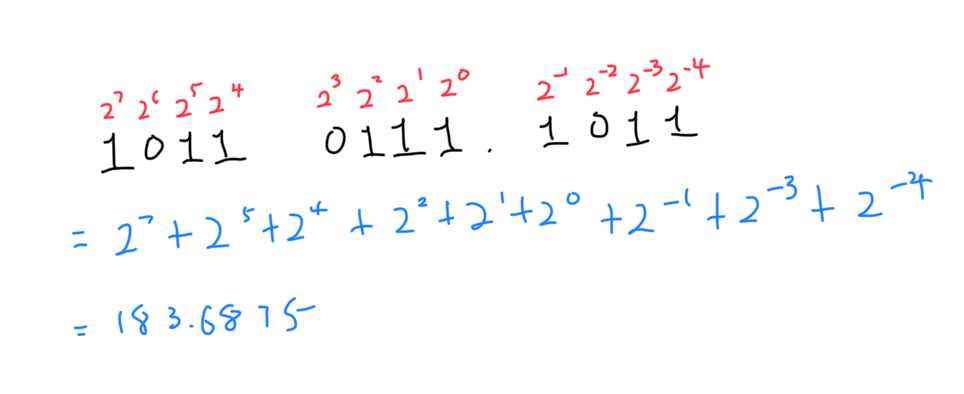 2⁷ 2⁶ 2⁵ 2⁴ 2³ 2² 2¹ 2⁰ 2⁻¹ 2⁻² 2⁻³ 2⁻⁴
1011 0111 . 1011
= 2⁷ + 2⁵ + 2⁴ + 2² + 2¹ + 2⁰ + 2⁻¹ + 2⁻³ + 2⁻⁴
= 183.6875